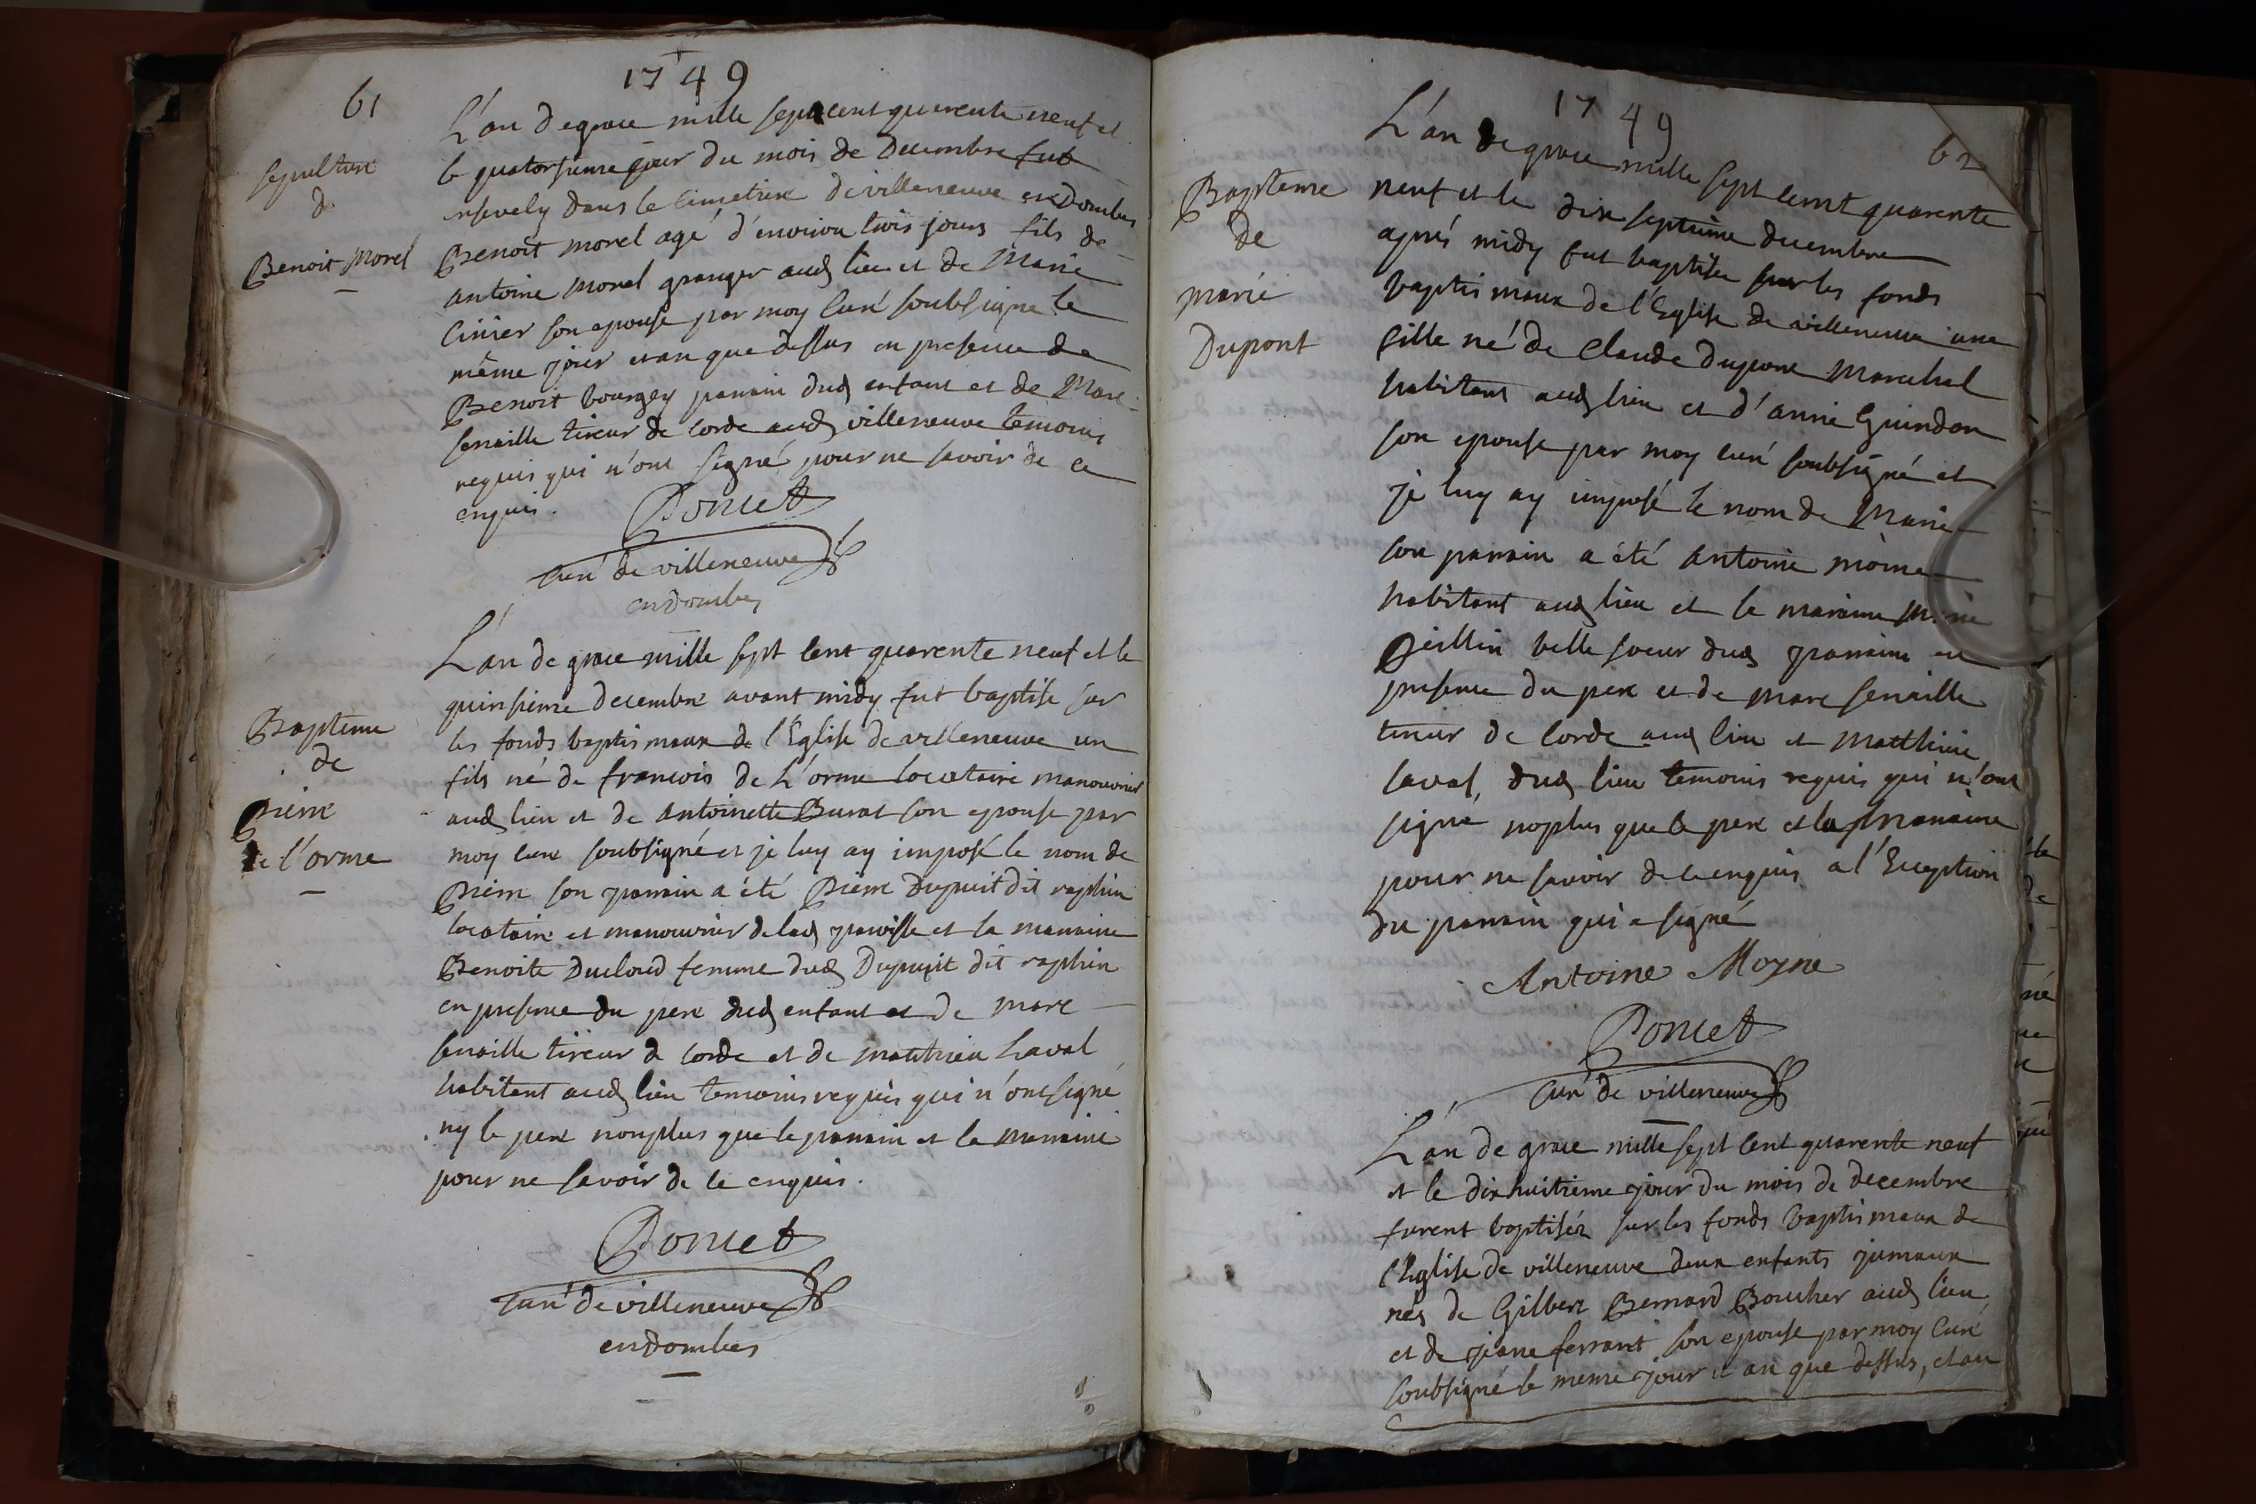 1749
61
L'an de grace mille sept cent quarente neuf et
le quatorsieme jour du mois de Decembre fut
ensevely dans le cimetiere de villeneuve en Dombes
Benoit morel agé d'environ trois jours fils de
antoine morel granger aud lieu et de Marie
Cinier son epouse par moy curé soubsigne le
même jour et an que dessus en presence de
Benoit bourgey parrain dud enfant et de Marc
senaille tireur de corde aud villeneuve temoins
requis qui n'ont signé pour ne savoir de ce
enquis.
sepulture
de
Benoit Morel
Poncet
curé de villeneuve
en dombes
L'an de grace mille sept cent quarente neuf et le
quinsieme decembre avant midy fut baptise sur
les fonds baptismaux de l'Eglise de villeneuve un
fils né de francois de L'orme locataire manouvrier
aud lieu et de antoinette Burat son epouse par
moy curé soubsigné et je luy ay imposé le nom de
Pierre son parrain a été Pierre Dupuit dit raphin
locataire et manouvrier de lad paroisse et la marraine
Benoite Ducloud femme dud Dupuit dit raphin
en presence du pere dud enfant et de marc
senaille tireur de corde et de matthieu Laval
habitant aud lieu temoins requis qui n'ont signé
ny le pere nonplus que le parrain et la marraine
pour ne savoir de ce enquis.
Bapteme
de
Pierre
de l'orme
Poncet
curé de villeneuve
en dombes
1749
62
L'an de grace mille sept cent quarente
neuf et le dix septieme decembre
aprés midy fut baptisée sur les fonds
baptismaux de l'Eglise de villeneuve une
fille né de Claude Dupont Marechal
habitant aud lieu et d'anne Guindon
son epouse par moy curé soubsigné et
je luy ay imposé le nom de Marie
son parrain a été antoine moine
habitant aud lieu et la maraine Marie
Peillin belle soeur dud parrain en
presence du pere et de marc senaille
tireur de corde aud lieu et Matthieu
Laval, dud lieu temoins requis qui n'ont
signé noplus que le pere et la marraine
pour ne savoir de ce enquis a l'Exception
du parrain qui a signé
Bapteme
de
marie
Dupont
Antoine Moyne
Poncet
curé de villeneuve
L'an de grace mille sept cent quarente neuf
et le dix huitieme jour du mois de decembre
furent baptiséz sur les fonds baptismaux de
l'Eglise de villeneuve deux enfants jumaux
nés de Gilbert Bernard Boucher aud lieu
et de jeane ferrant son epouse par moy curé
soubsigné le meme jour et an que dessus, et au